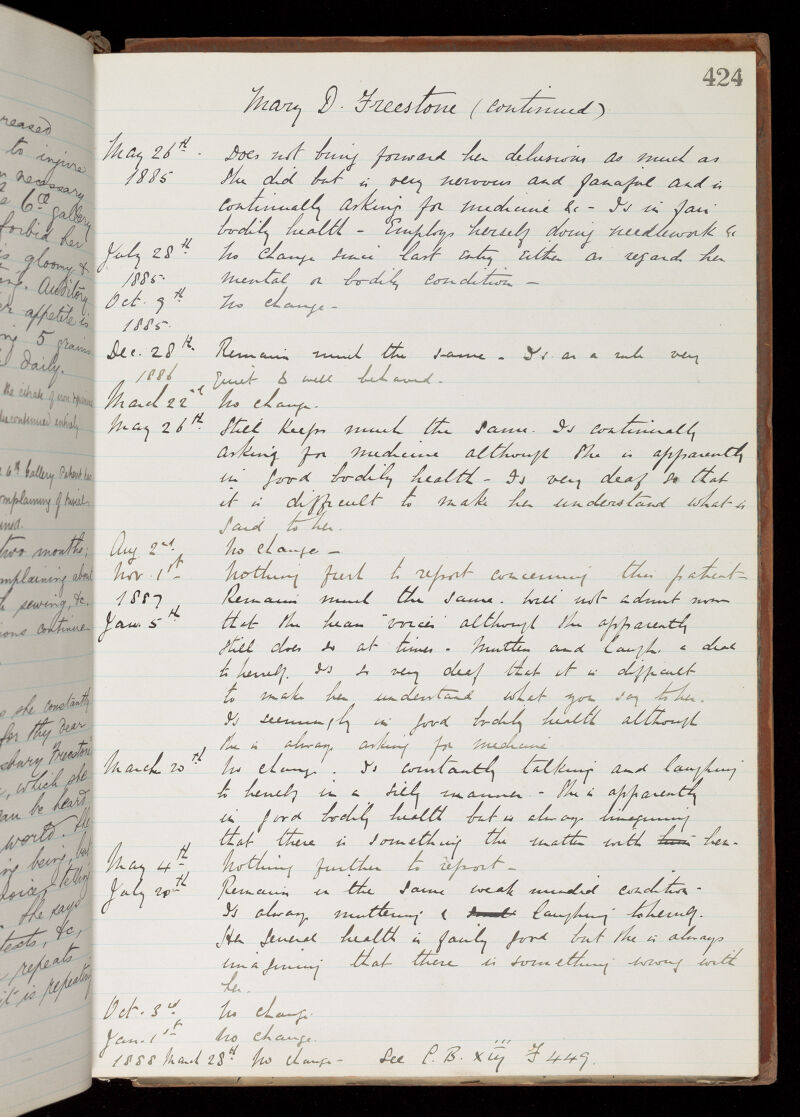 reased
to injure
necessary
6th gallery
forbid her
is gloomy &
Auditory
appetite is
5 grains
daily.
discontinued entirely
6th Gallery Patient has
complaining of
two months;
complaining about
sewing, &c.
continue
she constantly
for thy dear
Freestone
, which she
can be heard
world. He
being, but
voices telling
She says
&c,
repeats
it is repeating
424
Mary D. Freestone (continued)
May 26th - Does not bring forward her delusions as much as
1885 She did but is very nervous and fanciful and is
continually asking for medicine &c - Is in fair
bodily health - Employs herself doing needlework &c
July 28th No change since last entry either as regard her
1885 mental or bodily condition -
Oct. 9th No change -
1885.
Dec. 28th Remains much the same - Is as a rule very
1886 quiet & well behaved.
March 22nd No change.
May 26th Still keeps much the same. Is continually
asking for medicine although She is apparently
in good bodily health - Is very deaf so that
it is difficult to make her understand what is
said to her.
Aug 2nd No change -
Nov. 1st Nothing fresh to report concerning this patient -
1887 Remains much the same. Will not admit now
Jan. 5th that She hears "voices" although She apparently
Still does so at times - Mutters and laughs a deal
to herself. Is so very deaf that it is difficult
to make her understand what you say to her.
Is seemingly in good bodily health although
She is always asking for medicine
March 20th No change. Is constantly talking and laughing
to herself in a silly manner - She is apparently
in good bodily health but is always imagining
that there is something the matter with her -
May 4th Nothing further to report -
July 20th Remains in the same weak minded condition -
Is always muttering & laughing to herself.
Her General health is fairly good but She is always
imagining that there is something wrong with
her.
Oct. 3rd No change.
Jan. 1st No change.
1888 March 28th No change - See C.B. xiij F 449.